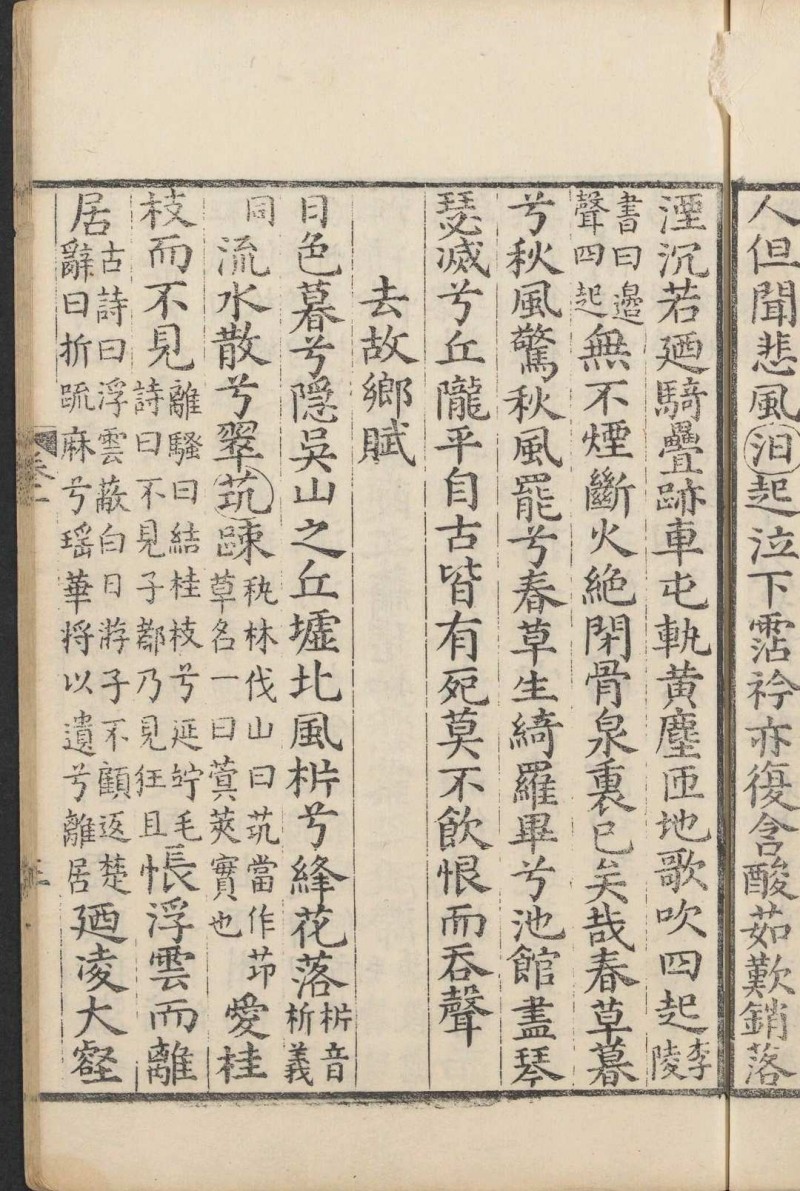 人但聞悲風汩起泣下霑衿亦復含酸茹歎銷落
湮沉若廼騎疊跡車屯軌黄塵匝地歌吹四起李陵
書曰邊聲四起無不煙斷火絶閉骨泉裏已矣哉春草暮
兮秋風驚秋風罷兮春草生綺羅畢兮池館盡琴
瑟滅兮丘隴平自古皆有死莫不飲恨而吞聲
去故鄉賦
日色暮兮隱吳山之丘墟北風㭊兮絳花落㭊音析義
同流水散兮翠茿疎秇林伐山曰茿當作茆草名一曰蓂莢實也愛桂
枝而不見離騷曰結桂枝兮延竚毛詩曰不見子都乃見狂且悵浮雲而離
居古詩曰浮雲蔽白日游子不顧返楚辭曰折疏麻兮瑶華將以遺兮離居廼凌大壑